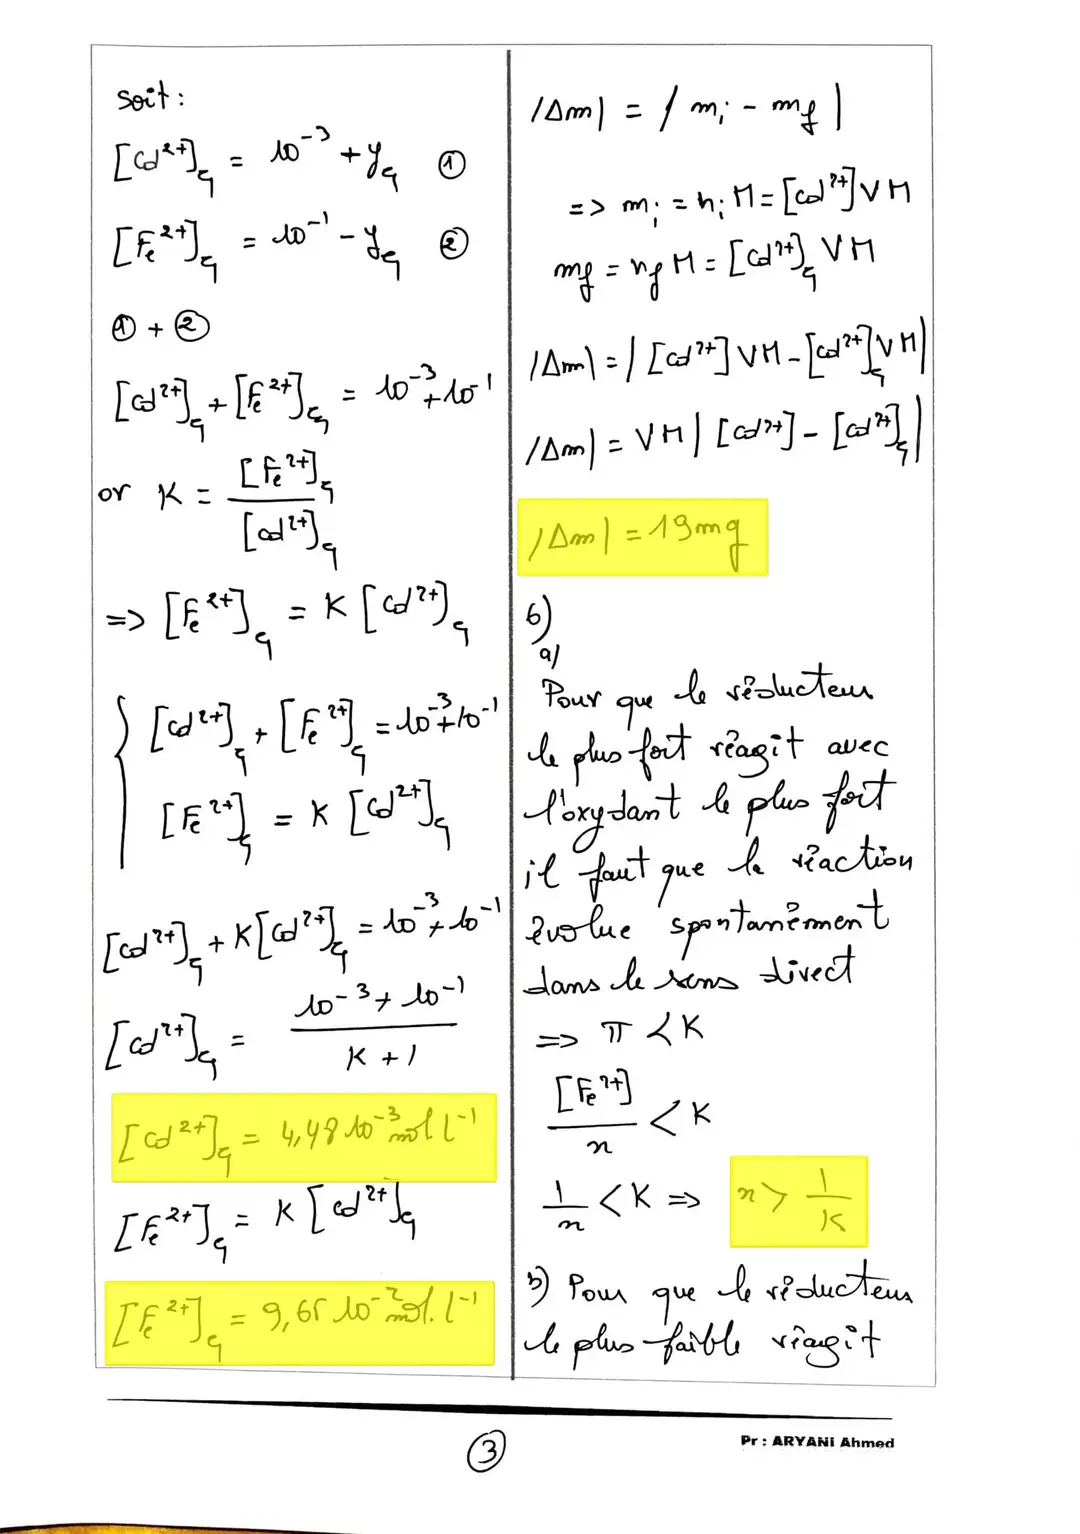 soit :
[Cd²⁺]éq = 10⁻³ + yéq ①
[Fe²⁺]éq = 10⁻¹ - yéq ②
① + ②
[Cd²⁺]éq + [Fe²⁺]éq = 10⁻³ + 10⁻¹
or K = [Fe²⁺]éq / [Cd²⁺]éq
=> [Fe²⁺]éq = K [Cd²⁺]éq
{ [Cd²⁺]éq + [Fe²⁺]éq = 10⁻³ + 10⁻¹
[Fe²⁺]éq = K [Cd²⁺]éq
[Cd²⁺]éq + K[Cd²⁺]éq = 10⁻³ + 10⁻¹
[Cd²⁺]éq = (10⁻³ + 10⁻¹) / (K + 1)
[Cd²⁺]éq = 4,48 10⁻³ mol l⁻¹
[Fe²⁺]éq = K [Cd²⁺]éq
[Fe²⁺]éq = 9,65 10⁻² mol. l⁻¹
|Δm| = |mi - mf|
=> mi = ni M = [Cd²⁺] V M
mf = nf M = [Cd²⁺]éq V M
|Δm| = | [Cd²⁺] V M - [Cd²⁺]éq V M|
|Δm| = V M | [Cd²⁺] - [Cd²⁺]éq|
|Δm| = 19 mg
6)
a/
Pour que le réducteur
le plus fort réagit avec
l'oxydant le plus fort
il faut que la réaction
évolue spontanément
dans le sens direct
=> π < K
[Fe²⁺] / n < K
1/n < K => n > 1/K
b) Pour que le réducteur
le plus faible réagit
Pr : ARYANI Ahmed
③